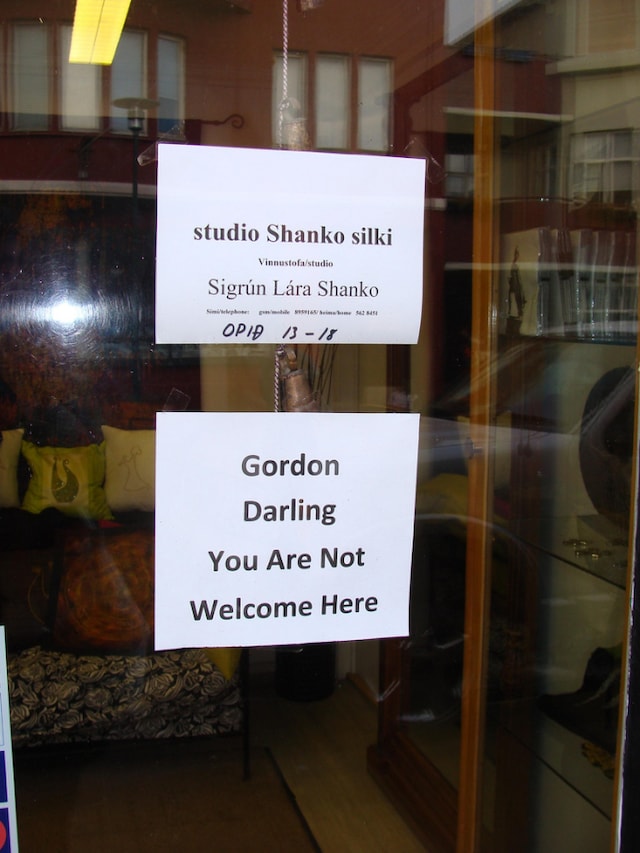 studio Shanko silki
Vinnustofa/studio
Sigrún Lára Shanko
Sími/telephone: gsm/mobile 8959165/ heima/home 562 8451
OPIÐ 13-18
Gordon
Darling
You Are Not
Welcome Here